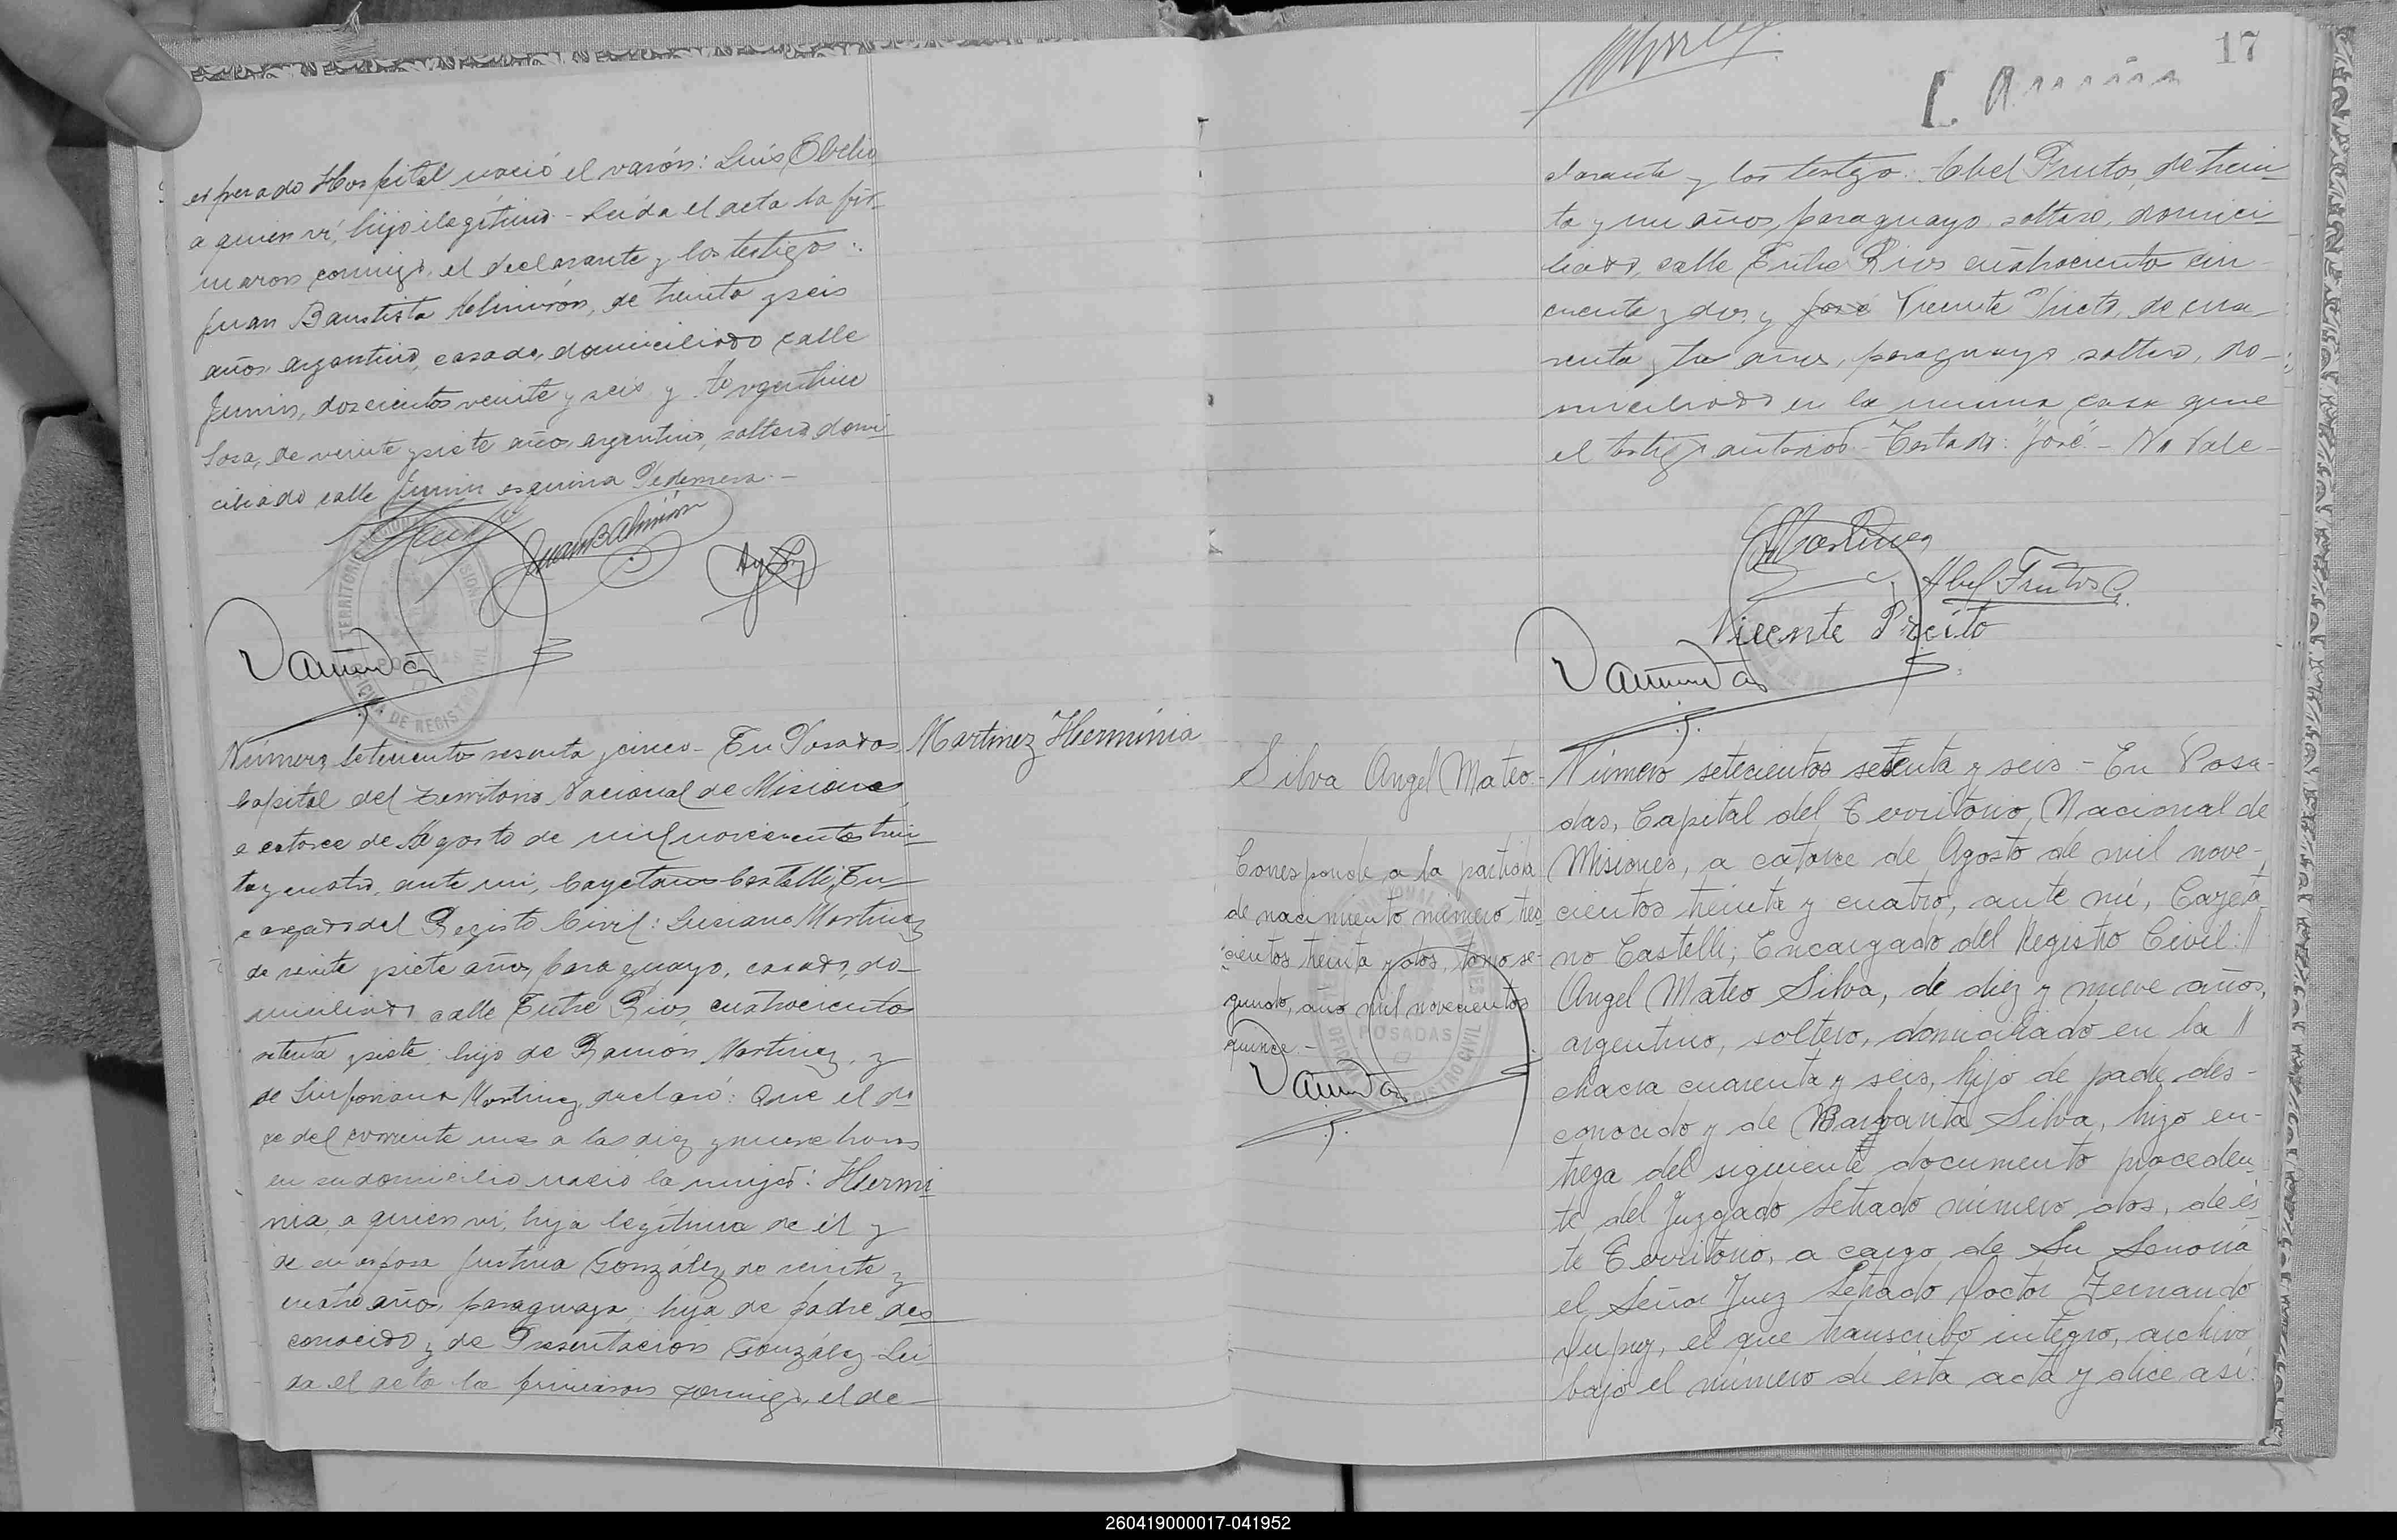 expresado Hospital nació el varón: Luis Obelio
a quien ví, hijo ilegítimo - Leída el acta la fir-
maron conmigo, el declarante y los testigos:
Juan Bautista Almirón, de treinta y seis
años, argentino, casado, domiciliado calle
Junin, doscientos veinte y seis y Argentino
Sosa, de veinte y siete años, argentino, soltero domi-
ciliado calle Junin esquina Pedernera. -
Juan B Almirón
TERRITORIO
MISIONES
OFICINA DE REGISTRO CIVIL
Número setecientos sesenta y cinco - En Posadas
Capital del Territorio Nacional de Misiones
a catorce de Agosto de mil novecientos trein-
ta y cuatro, ante mi, Cayetano Castelli, En-
cargado del Registro Civil: Luciano Martinez
de veinte y siete años, paraguayo, casado, do-
miciliado calle Entre Rios cuatrocientos
setenta y siete; hijo de Ramón Martinez, y
de Sinforiana Martinez, declaró: Que el do-
ce del corriente mes a las diez y nueve horas
en su domicilio nació la mujer: Hermi-
nia, a quien vi, hija legítima de él y
de su esposa Justina González, de veinte y
cuatro años, paraguaya, hija de padre des-
conocido y de Presentación González - Leí-
da el acta la firmaron conmigo, el de-
Martinez Herminia
17
clarante y los testigos: Abel Frutos, de trein-
ta y un años, paraguayo, soltero, domici-
liado, calle Entre Rios cuatrocientos cin-
cuenta y dos, y José Vicente Prieto, de cua-
renta y tres años, paraguayo soltero, do-
miciliado en la misma casa que
el testigo anterior - Testado: "José" - No Vale -
Martinez
Abel Frutos G.
Vicente Prieto
Silva Angel Mateo -
Corresponde a la partida
de nacimiento número tres-
cientos treinta y dos, tomo se-
gundo, año mil novecientos
quince. -
POSADAS
REGISTRO CIVIL
Número setecientos setenta y seis - En Posa-
das, Capital del Territorio Nacional de
Misiones, a catorce de Agosto de mil nove-
cientos treinta y cuatro, ante mí, Cayeta-
no Castelli, Encargado del Registro Civil: //
Angel Mateo Silva, de diez y nueve años,
argentino, soltero, domiciliado en la //
chacra cuarenta y seis, hijo de padre des-
conocido y de Margarita Silva, hizo en-
trega del siguiente documento proceden-
te del Juzgado Letrado número dos, de és-
te Territorio, a cargo de Su Senoria
el Señor Juez Letrado Doctor Fernando
Dupuy, el que transcribo integro, archivo
bajo el número de esta acta y dice así: